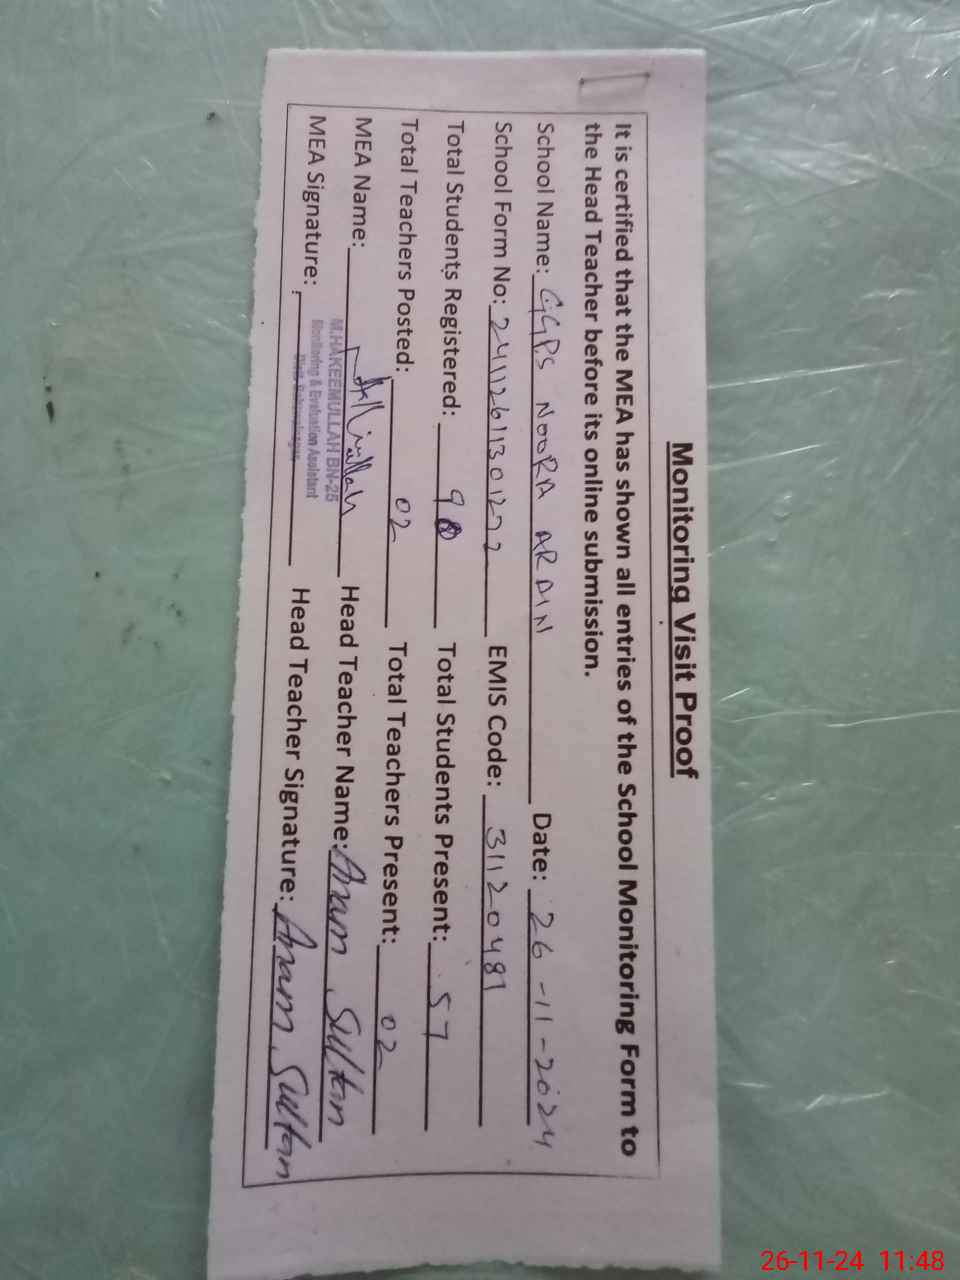 Monitoring Visit Proof
It is certified that the MEA has shown all entries of the School Monitoring Form to
the Head Teacher before its online submission.
School Name: GGPS NOORA ARAIN Date: 26-11-2024
School Form No: 24112611301277 EMIS Code: 31120481
Total Students Registered: 90 Total Students Present: 57
Total Teachers Posted: 02 Total Teachers Present: 02
MEA Name: Head Teacher Name: Anam Sultan
M.HAKEEMULLAH BN-25
Monitoring & Evaluation Assistant
MEA Signature: Head Teacher Signature: Anam Sultan
26-11-24 11:48